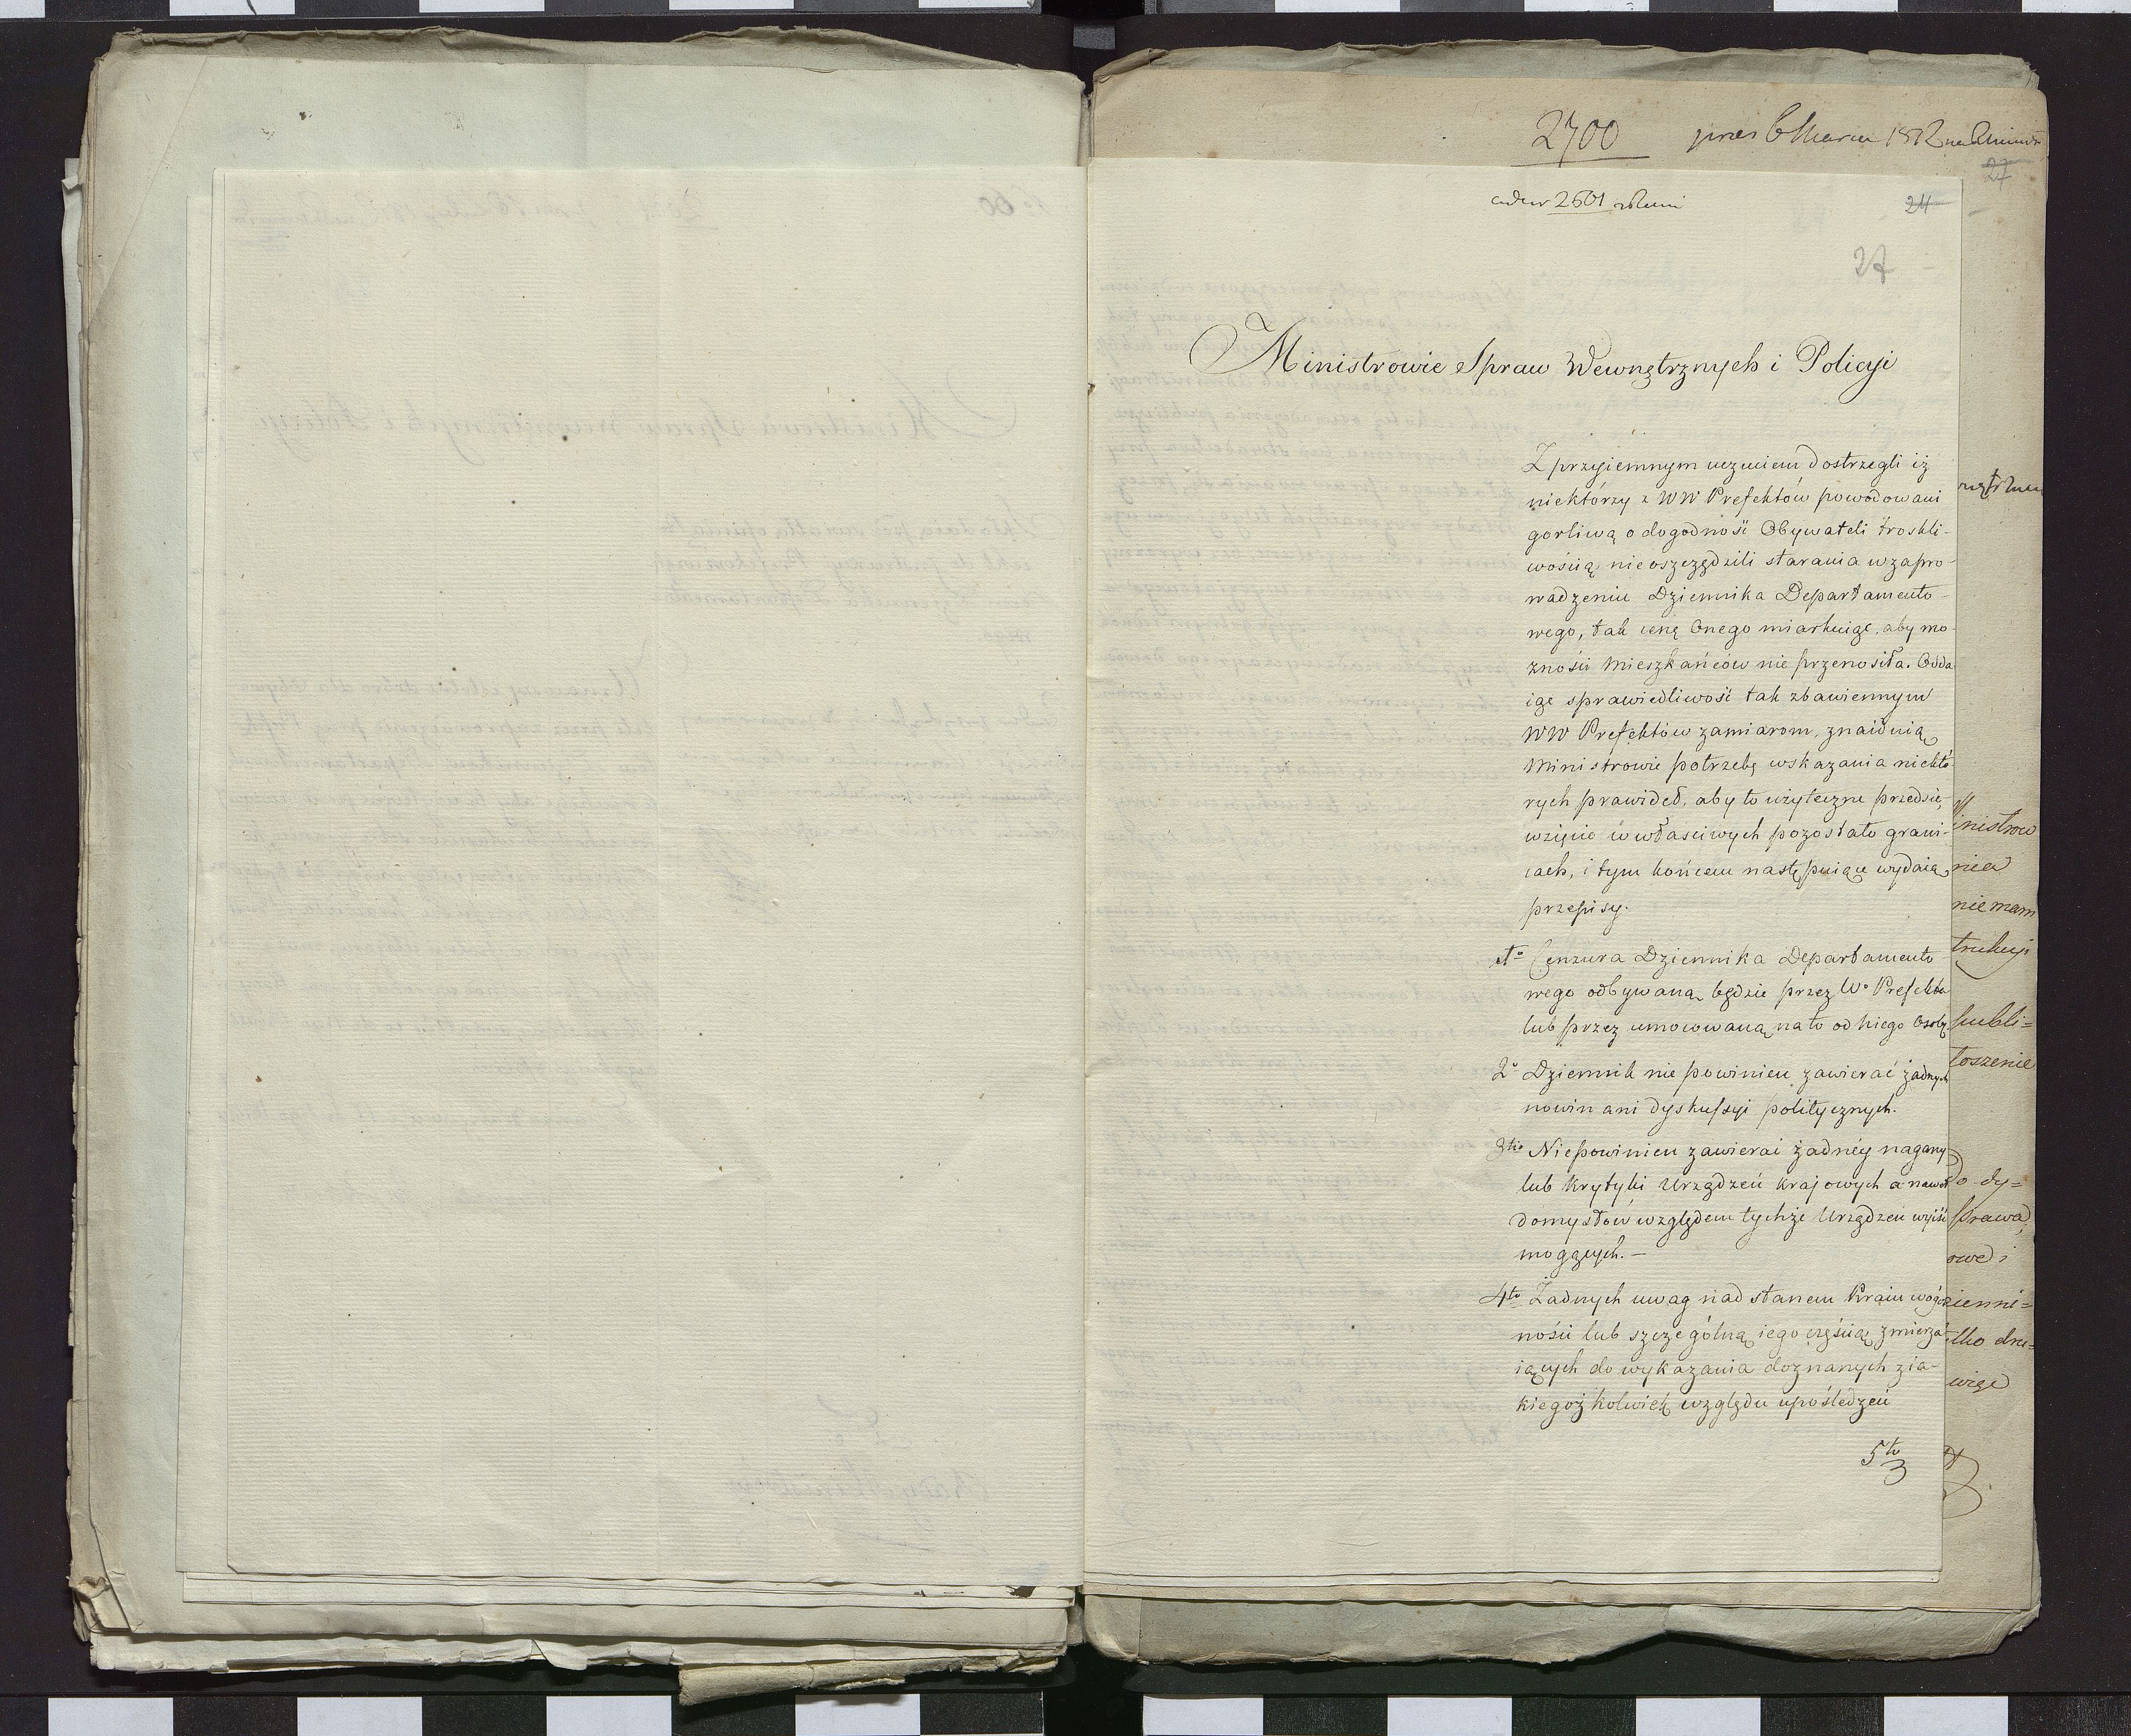 2700
1812
ad nr 2501
24
27
27
Ministrowie Spraw Wewnętrznych i Policyi
Z przyiemnym uczuciem dostrzegli iż
niektórzy z WW Prefektów powodowani
gorliwą o dogodność Obywateli troskli-
wością nieoszczędzili starania w zapro-
wadzeniu Dziennika Departamento-
wego, tak cenę Onego miarkuiąc, aby mo-
żności Mieszkańców nie przenosiła. Odda-
iąc sprawiedliwość tak zbawiennym
WW Prefektów zamiarom, znaiduią
Ministrowie potrzebę wskazania niektó-
rych prawideł, aby to użyteczne przedsię-
wzięcie w właściwych pozostało grani-
cach, i tym końcem następuiące wydaią
przepisy.
1o Cenzura Dziennika Departamento-
wego odbywaną będzie przez Wo Prefekta
lub przez umocowaną na to od niego Osobę
2o Dziennik nie powinien zawierać żadnych
nowin ani dyskussyi politycznych.
3tio Niepowinien zawierać żadnéy nagany
lub krytyki Urządzeń krajowych a nawet
domysłów względem tychże Urządzeń wyiść
mogących. –
4to Żadnych uwag nad stanem Kraiu w ogól-
ności lub szczególną iego częścią zmierza-
iących do wykazania doznanych z ia-
kiegoż kolwiek względu upośledzeń
5to
inistrow
nia
nie mam
trukcyi
publi=
łoszenie
do dy=
prawa
owe i
zienni=
ylko dru=
więc